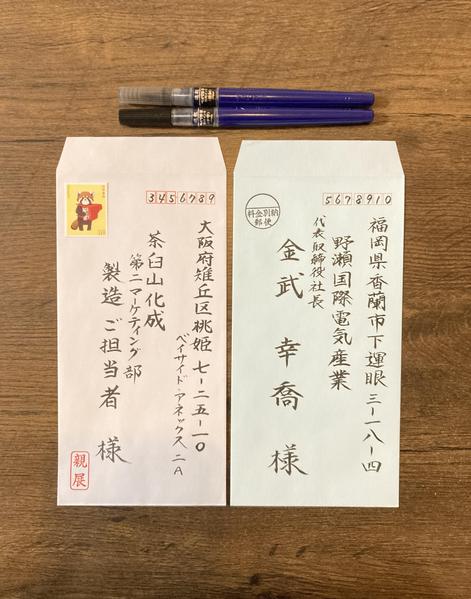 3456789
大阪府雉丘区桃姫 七-二五-一〇
ベイサイド・アネックス 二A
茶臼山化成
第二マーケティング部
製造ご担当者 様
親展
料金別納
郵便
5678910
福岡県香蘭市下運眼 三-一八-四
野瀬国際電気産業
代表取締役社長
金武 幸喬 様